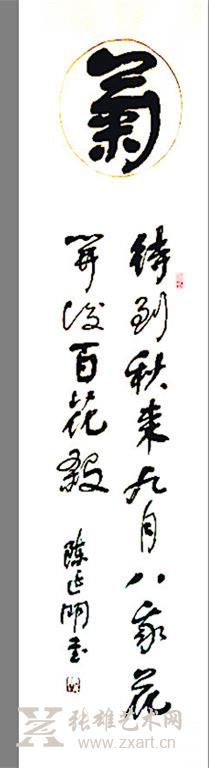 菊
待到秋来九月八我花
开后百花殺
陈延明书
张雄艺术网
www.zxart.cn